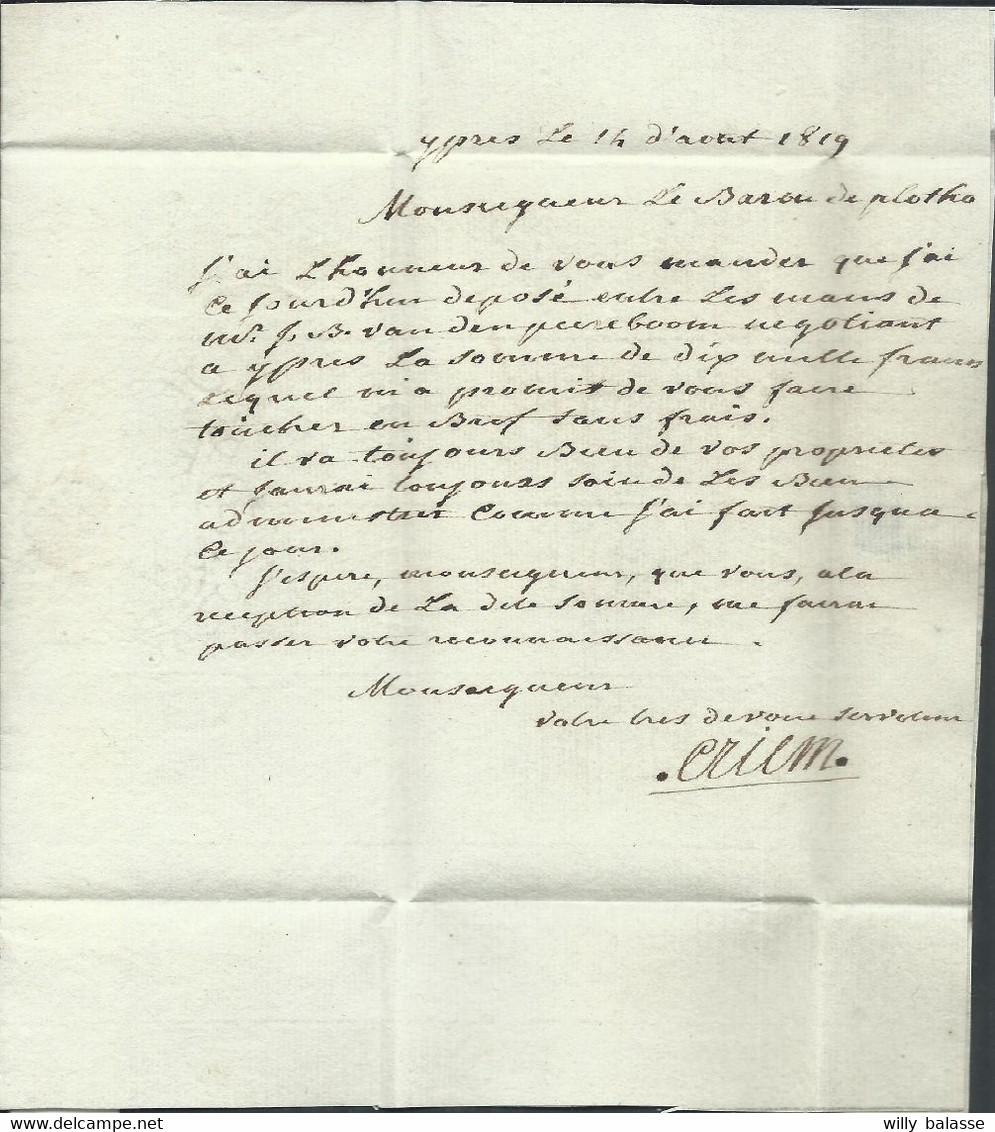 ypres Le 14 d'aout 1819
Monseigneur Le Baron de plotho
J'ai L'honneur de vous mander que J'ai
Ce Jourd'hui deposé entre Les mains de
Mr. J. B. van den peereboom negotiant
a ypres La somme de dix mille francs
Lequel m'a promit de vous faire
toucher en Bref sans frais.
il va toujours Bien de vos proprietes
et J'aurai toujours soin de Les Bien
administrer Comme J'ai fait Jusqua
Ce jour.
J'espere, monseigneur, que vous, a la
reception de La dite somme, me fairai
passer votre reconnaissance.
Monseigneur
votre tres devoué serviteur
willy balasse